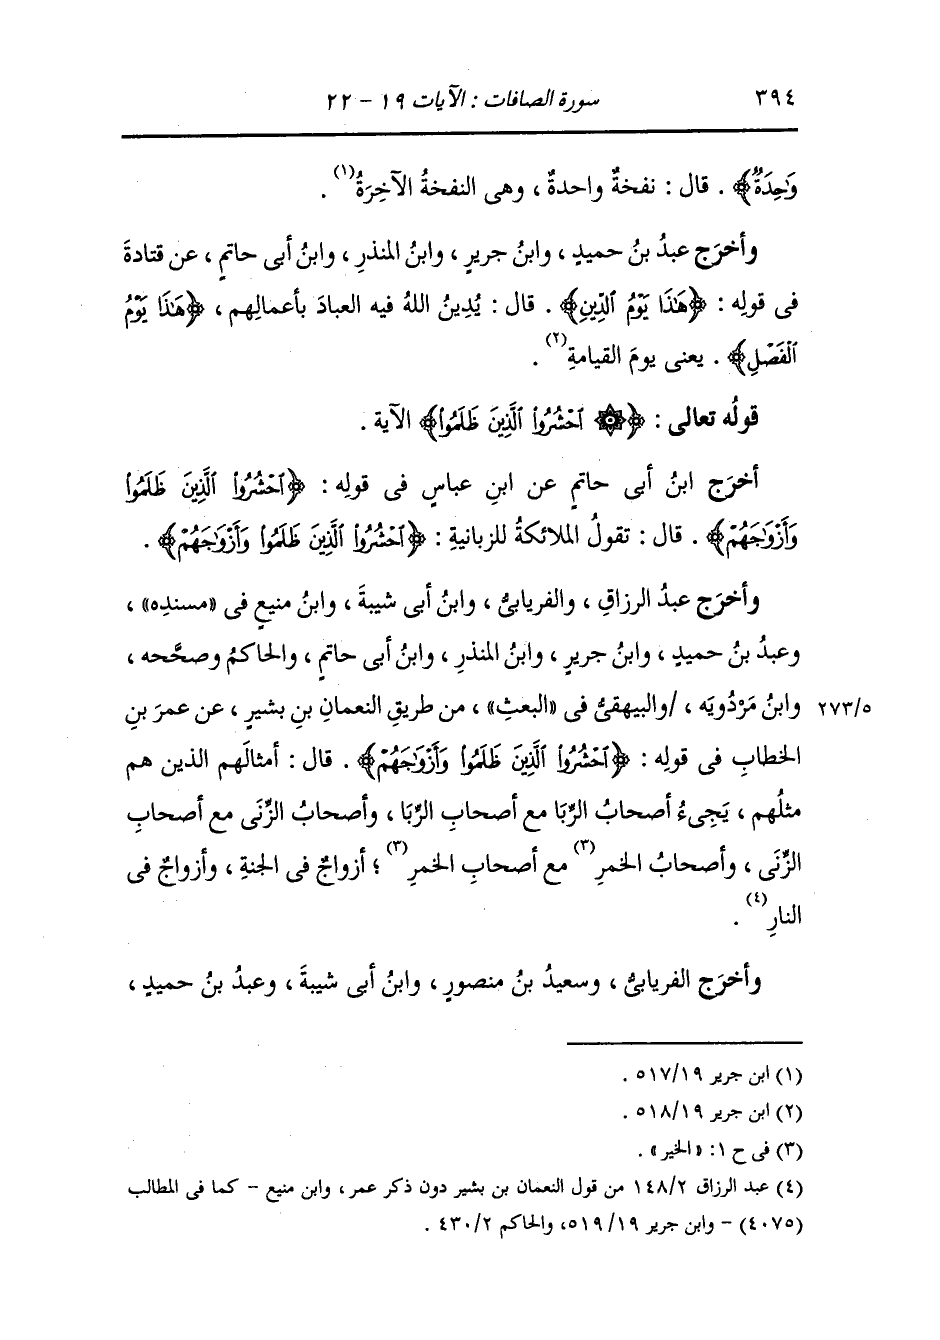 ٣٩٤ سورة الصافات : الآيات ١٩ - ٢٢
وَٰحِدَةٌ﴾ . قال : نفخةٌ واحدةٌ ، وهى النفخةُ الآخِرَةُ(١) .
وأخرَج عبدُ بنُ حميدٍ ، وابنُ جريرٍ ، وابنُ المنذرِ ، وابنُ أبى حاتمٍ ، عن قتادةَ
فى قولِه : ﴿هَٰذَا يَوْمُ ٱلدِّينِ﴾ . قال : يُدِينُ اللهُ فيه العبادَ بأعمالِهم ، ﴿هَٰذَا يَوْمُ
ٱلْفَصْلِ﴾ . يعنى يومَ القيامةِ(٢) .
قولُه تعالى : ﴿۞ ٱحْشُرُوا۟ ٱلَّذِينَ ظَلَمُوا۟﴾ الآية .
أخرَج ابنُ أبى حاتمٍ عن ابنِ عباسٍ فى قولِه : ﴿ٱحْشُرُوا۟ ٱلَّذِينَ ظَلَمُوا۟
وَأَزْوَٰجَهُمْ﴾ . قال : تقولُ الملائكةُ للزبانيةِ : ﴿ٱحْشُرُوا۟ ٱلَّذِينَ ظَلَمُوا۟ وَأَزْوَٰجَهُمْ﴾ .
وأخرَج عبدُ الرزاقِ ، والفريابىُّ ، وابنُ أبى شيبةَ ، وابنُ منيعٍ فى «مسندِه» ،
وعبدُ بنُ حميدٍ ، وابنُ جريرٍ ، وابنُ المنذرِ ، وابنُ أبى حاتمٍ ، والحاكمُ وصحَّحه ،
٢٧٣/٥ وابنُ مَرْدُويَه ، /والبيهقىُّ فى «البعثِ» ، من طريقِ النعمانِ بنِ بشيرٍ ، عن عمرَ بنِ
الخطابِ فى قولِه : ﴿ٱحْشُرُوا۟ ٱلَّذِينَ ظَلَمُوا۟ وَأَزْوَٰجَهُمْ﴾ . قال : أمثالَهم الذين هم
مثلُهم ، يَجِىءُ أصحابُ الرِّبَا مع أصحابِ الرِّبَا ، وأصحابُ الزِّنَى مع أصحابِ
الزِّنَى ، وأصحابُ الخمرِ(٣) مع أصحابِ الخمرِ(٣) ؛ أزواجٌ فى الجنةِ ، وأزواجٌ فى
النارِ(٤) .
وأخرَج الفريابىُّ ، وسعيدُ بنُ منصورٍ ، وابنُ أبى شيبةَ ، وعبدُ بنُ حميدٍ ،
(١) ابن جرير ٥١٧/١٩ .
(٢) ابن جرير ٥١٨/١٩ .
(٣) فى ح ١: «الخير» .
(٤) عبد الرزاق ١٤٨/٢ من قول النعمان بن بشير دون ذكر عمر ، وابن منيع - كما فى المطالب
(٤٠٧٥) - وابن جرير ٥١٩/١٩، والحاكم ٤٣٠/٢ .